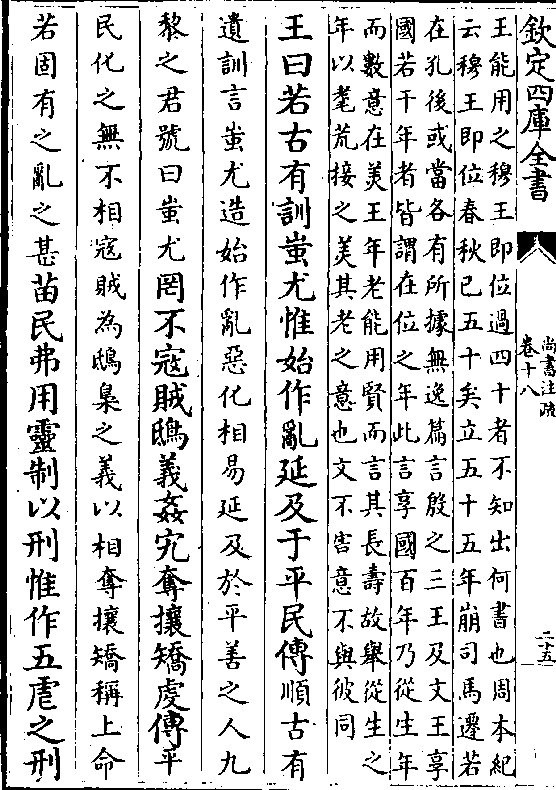 欽定四庫全書
尚書注疏
卷十八
二十五
王能用之穆王即位過四十者不知出何書也周本紀
云穆王即位春秋已五十矣立五十五年崩司馬遷若
在孔後或當各有所據無逸篇言殷之三王及文王享
國若干年者皆謂在位之年此言享國百年乃從生年
而數意在美王年老能用賢而言其長壽故舉從生之
年以耄荒接之美其老之意也文不害意不與彼同
王曰若古有訓蚩尤惟始作亂延及于平民傳順古有
遺訓言蚩尤造始作亂惡化相易延及於平善之人九
黎之君號曰蚩尤罔不寇賊鴟義姦宄奪攘矯虔傳平
民化之無不相寇賊為鴟梟之義以相奪攘矯稱上命
若固有之亂之甚苗民弗用靈制以刑惟作五虐之刑